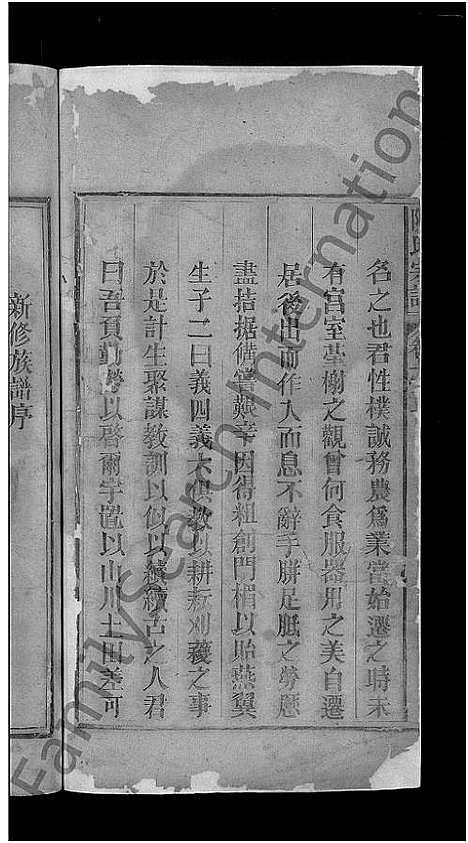 名之也君性樸誠務農爲業當始遷之時未
有宫室臺榭之觀曾何食服器用之美自遷
居後出而作入而息不辭手胼足胝之勞歷
盡拮据備嘗艱辛因得粗創門楣以貽燕翼
生子二曰義四義六俱教以耕耘刈穫之事
於是計生聚謀教訓以似以續續古之人君
曰吾負勤勞以啓爾宇置以山川土田差可
新修族譜序
FamilySearch International